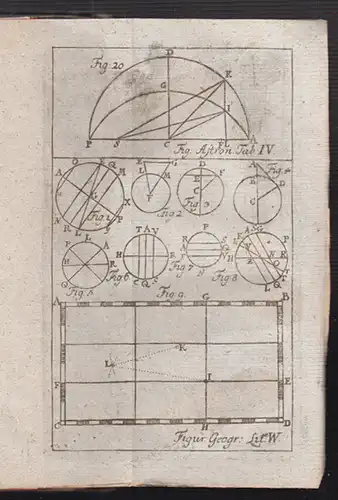 D
Fig. 20
K
G
I
P S C F L A
Fig. Astron. Tab. IV
O E Q M
A
G
X
N
P
R L S
Fig. 1
E G
L M
F
Fig. 2
D
E F
C
Fig. 3
A
Fig. 4
E D
C
P A
H R
Q
Fig. 5
T A V
H R
C Q S
Fig. 6
P
R S
A Q
F
N
Fig. 7
A S G
F P
H E
N
O
T
L Q
Fig. 8
Fig. 9.
A G B
K
L
I
F E
C H D
Figur Geogr: Lit. W.